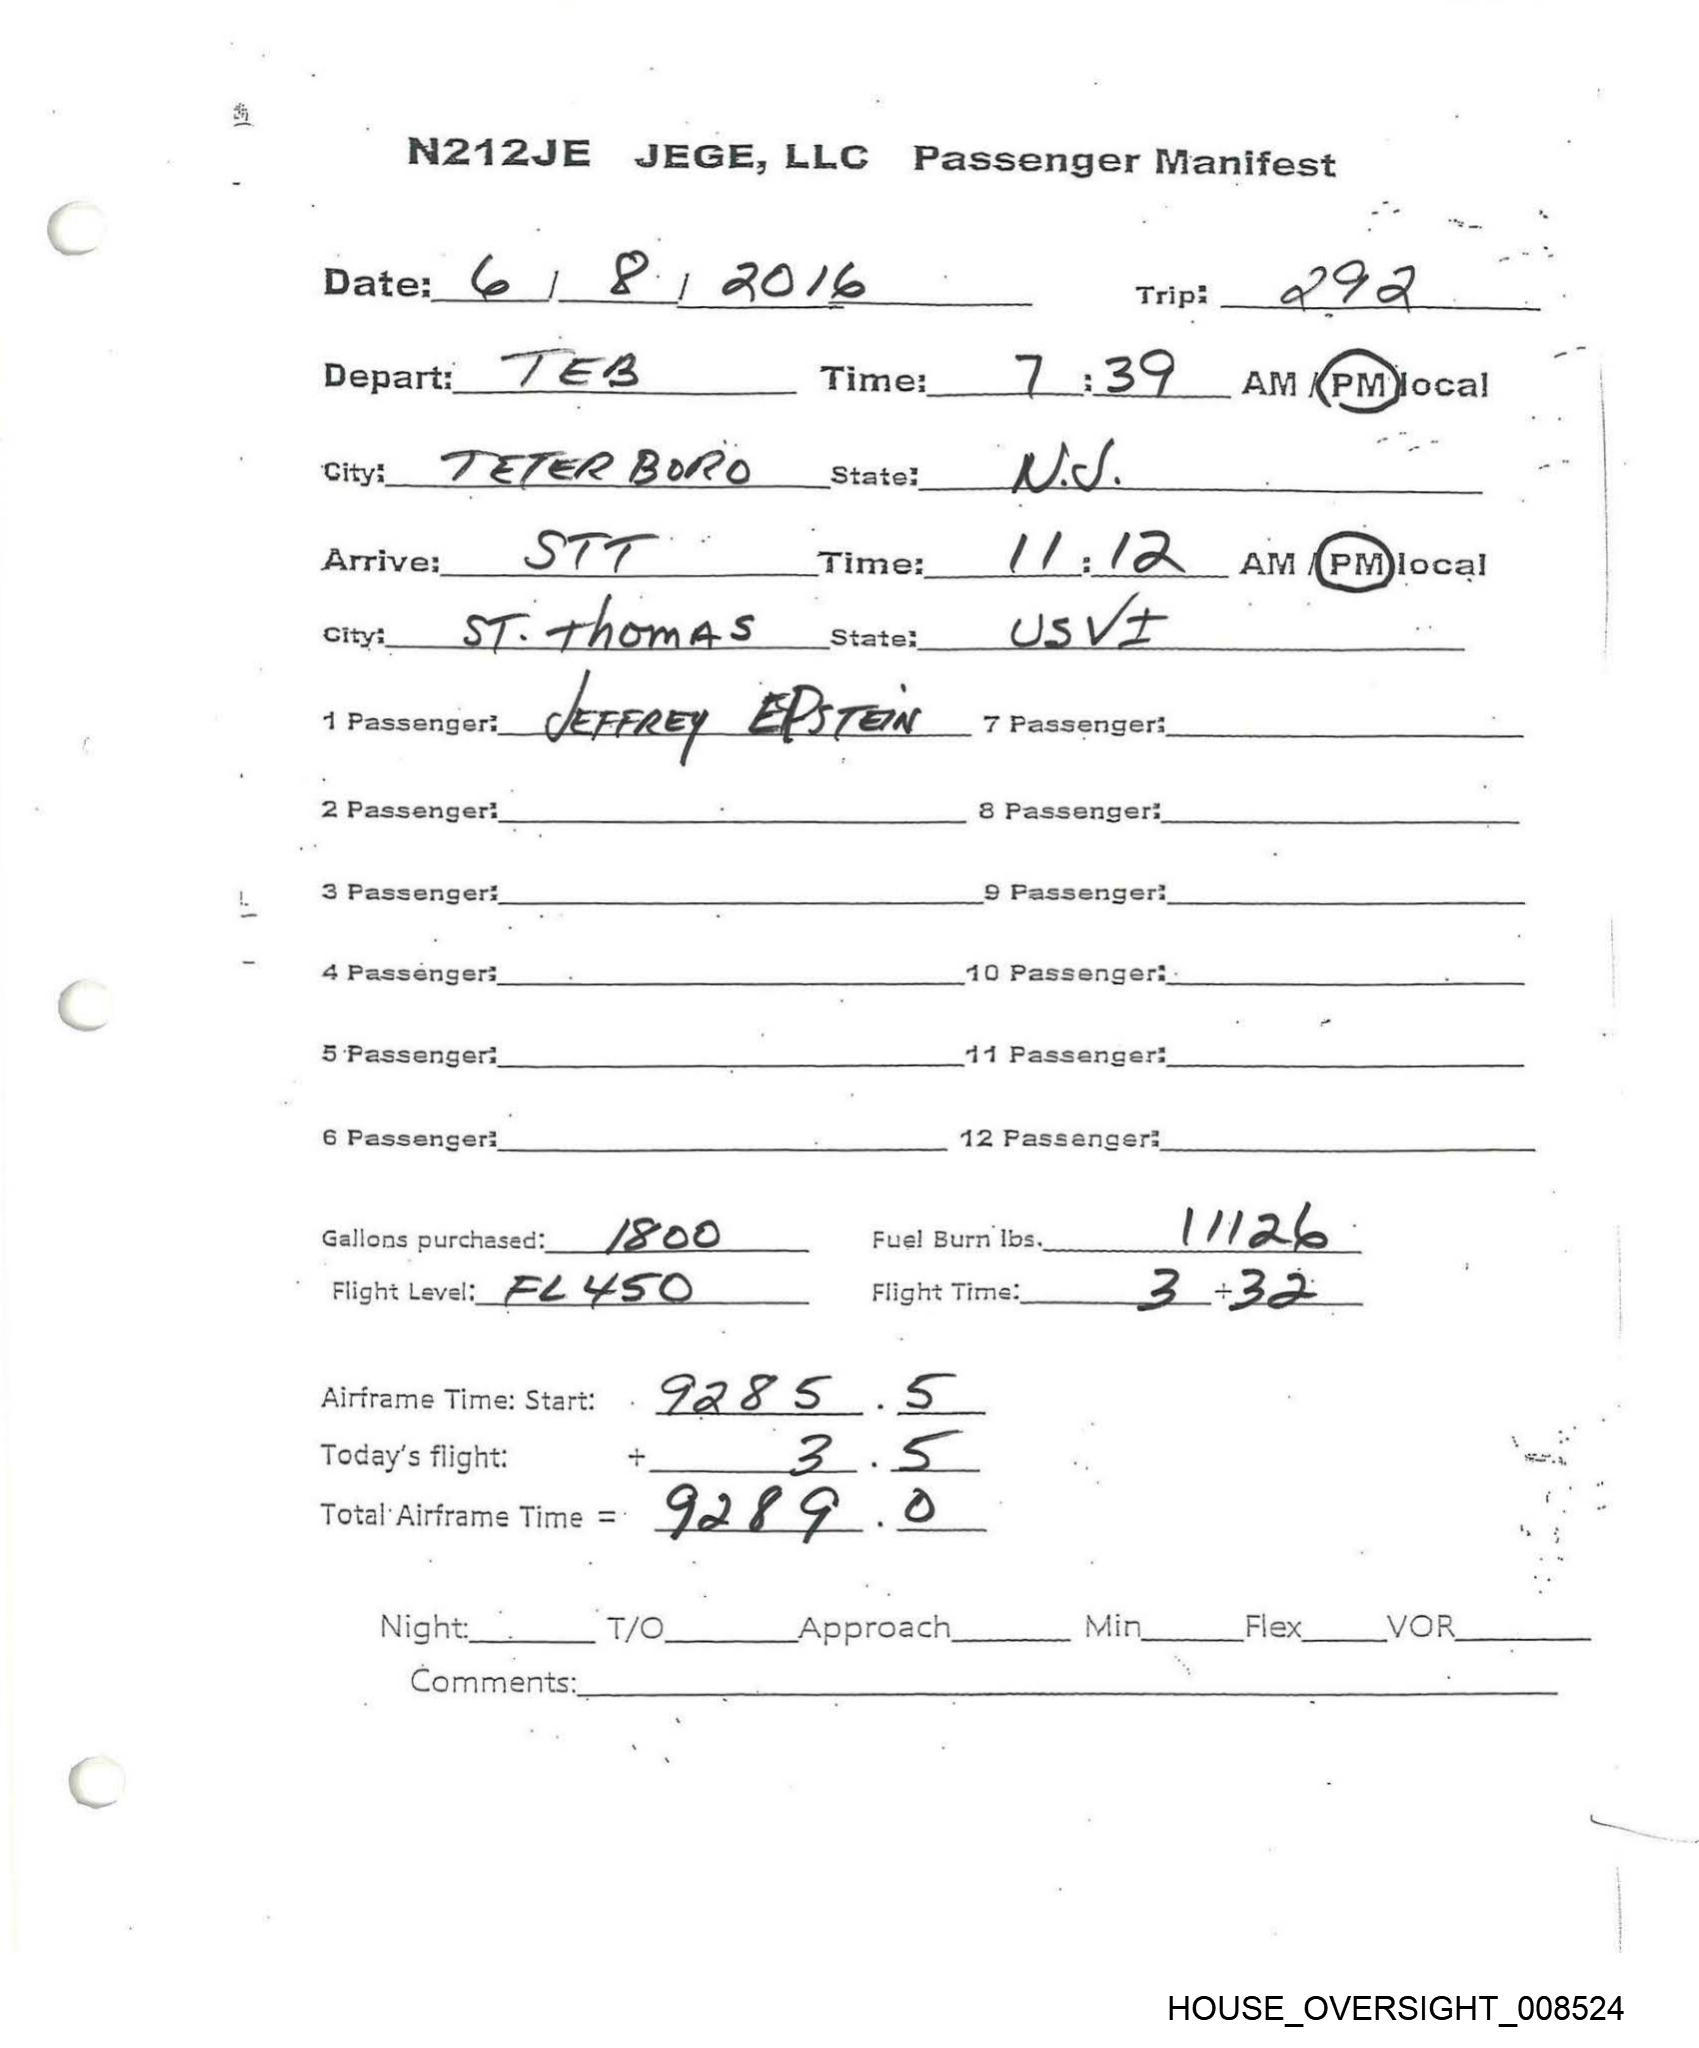 N212JE JEGE, LLC Passenger Manifest
Date: 6 / 8 / 2016 Trip: 292
Depart: TEB Time: 7 : 39 AM / PM local
City: TETERBORO State: N.J.
Arrive: STT Time: 11 : 12 AM / PM local
City: ST. Thomas State: USVI
1 Passenger: JEFFREY EPSTEIN 7 Passenger:
2 Passenger: 8 Passenger:
3 Passenger: 9 Passenger:
4 Passenger: 10 Passenger:
5 Passenger: 11 Passenger:
6 Passenger: 12 Passenger:
Gallons purchased: 1800 Fuel Burn lbs. 11126
Flight Level: FL 450 Flight Time: 3 + 32
Airframe Time: Start: 9285 . 5
Today's flight: + 3 . 5
Total Airframe Time = 9289 . 0
Night: T/O Approach Min Flex VOR
Comments:
HOUSE_OVERSIGHT_008524